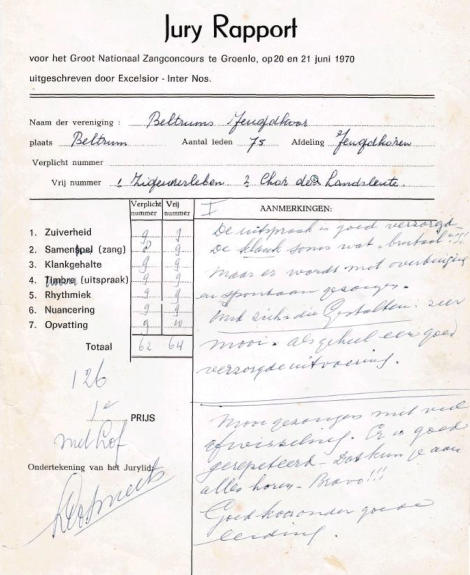 Jury Rapport
voor het Groot Nationaal Zangconcours te Groenlo, op 20 en 21 juni 1970
uitgeschreven door Excelsior - Inter Nos.
Naam der vereniging : Beltrums Jeugdkoor
plaats Beltrum Aantal leden 75 Afdeling Jeugdkoren
Verplicht nummer
Vrij nummer 1 Zigeunerleben 2 Chor der Landsleute.
Verplicht nummer Vrij nummer I AANMERKINGEN:
1. Zuiverheid 9 9
2. Samen (zang) 9
3. Klankgehalte 9 9
4. Timbre (uitspraak) 9 9
5. Rhythmiek 9 9
6. Nuancering 9 9
7. Opvatting 9 10
Totaal 62 64
126
1e PRIJS
met lof
Ondertekening van het Jurylid:
De uitspraak is goed verzorgd -
De klank soms wat brutaal!!!
Maar er wordt met overtuiging
en spontaan gezongen.
zeer
mooi. als geheel een goed
verzorgde uitvoering.
Mooi gezongen met veel
afwisseling. Er is goed
gerepeteerd - Dat kun je aan
alles horen - Bravo!!!
Goed koor onder goede
leiding.